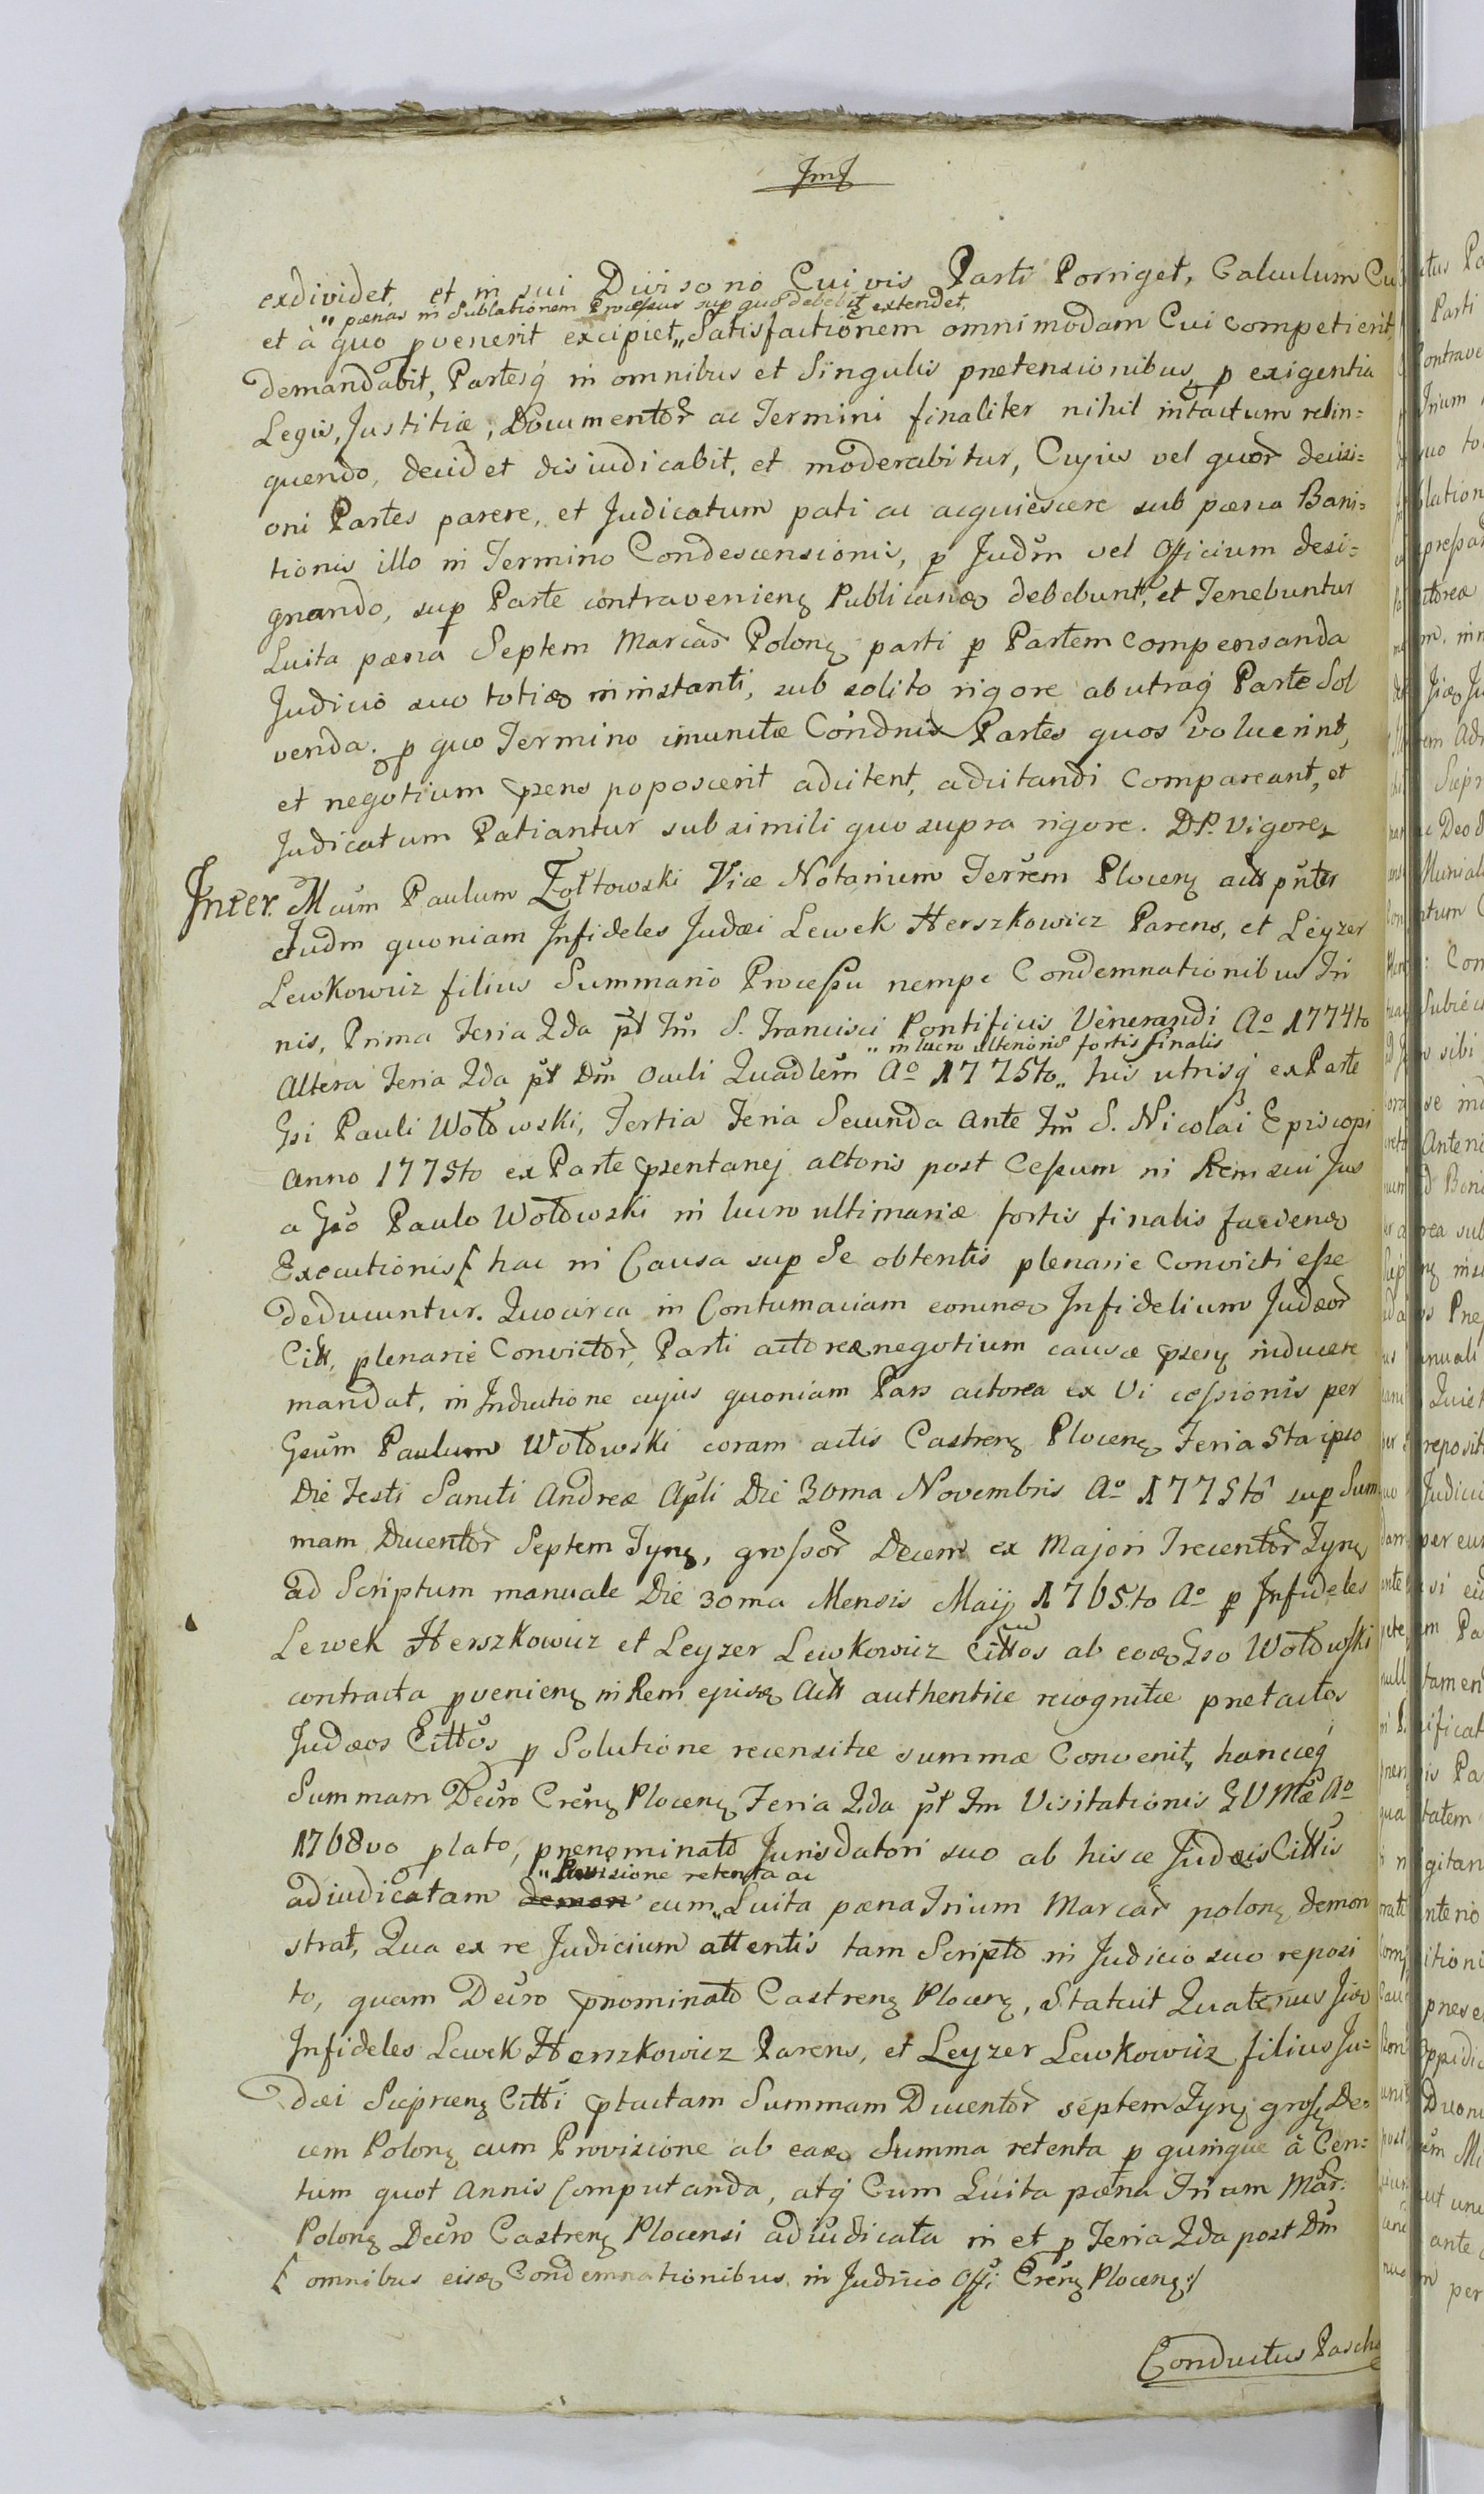 JmJ
exdividet, et in sui Divisono Cuivis Parti Porriget, Calculum
„ pænas in Sublationem Processus sup quo debebit extendet,
et à quo pvenerit excipiet„ Satisfactionem omnimodam Cui competierit,
demandabit, Partesq́ in omnibus et Singulis prætensionibus, p exigentia
Legis, Justitiæ, Documentor̃ ac Termini finaliter nihil intactum relin=
quendo, decidet disiudicabit, et moderabitur, Cujus vel quor̃ decisi=
oni Partes parere, et Judicatum pati ac acquiescere sub pæna Bani=
tionis illo in Termino Condescensionis, p Judm̃ vel Officium desi=
gnando, sup Parte contravenienȝ Publicanȝ debebunt, et Tenebuntur
Luita pæna Septem Marcar̃ Polonȝ parti p Partem compensanda
Judicio suo toties in instanti, sub solito rigore ab utraq́ Parte Sol
venda. p quo Termino imunitæ Condnis Partes quos voluerint,
et negotium pzens poposcerit adcitent, adcitandi Compareant, et
Judicatum Patiantur sub simili quo supra rigore. DP. Vigore
Inter. Mcum Paulum Żołtowski Vice Notarium Terrem Plocenȝ act pntis
Judm quoniam Infideles Judæi Lewek Herszkowicz Parens, et Leyzer
Lewkowicz filius Summario Processu nempe Condemnationibus Tri
nis, Prima Feria 2da pt Fm̃ S. Francisci Pontificis Venerandi Aº 1774to
„ in lucro ulterioris sortis finalis
Altera Feria 2da pt Dm̃ Oculi Quadlem̃ Aº 1775to„ his utrisq́ ex Parte
Gsi Pauli Wołowski, Tertia Feria Secunda ante Fm̃ S. Nicolai Episcopi
Anno 1775to ex Parte pzentanej actoris post Cessum in Rem sui Jus
a Gso Paulo Wołowski in lucro ultimariæ sortis finalis faciendȝ
Executionis [ hac in Causa sup Se obtentis plenarie Convicti esse
deducuntur. Quocirca in Contumaciam eorundȝ Infidelium Judæor̃
Citt, plenarie Convictor̃, Parti actoreæ negotium causæ pzesȝ inducere
mandat, in Inductione cujus quoniam Pars actorea ex Vi cessionis per
Gsum Paulum Wołowski coram actis Castrenȝ Plocenȝ Feria 5ta ipso
Die Festi Sancti Andreæ Apli Die 30ma Novembris Aº 1775to sup Sum
mam Ducentor̃ Septem Tynȝ, grossor̃ Decem ex Majori Trecentor̃ Tynȝ
ad Scriptum manuale Die 30ma Mensis Maij 1765to Aº p Infideles
Lewek Herszkowicz et Leyzer Lewkowicz Cittos ab eodȝ Gso Wołowski
contracta pvenienȝ in Rem ejusdȝ Actt authentice recognitæ prætactos
Judæos Cittos p Solutione recensitæ summæ Convenit, hancceq́
Summam Decro Crenȝ Plocenȝ Feria 2da pt Fm Visitationis BVMæ Aº
1768vo plato, prænominato Jurisdatori suo ab hisce Judæis Cittis
„ Provisione retenta ac
adiudicatam demon cum„ Luita pæna Trium Marcar̃ polonȝ demon
strat, Qua ex re Judicium attentis tam Scripto in Judicio suo reposi
to, quam Decro pnominato Castrenȝ Plocenȝ, Statuit Quatenus
Infideles Lewek Herszkowicz Parens, et Leyzer Lewkowicz filius Ju=
dæi Sierpcenȝ Citti ptactam Summam Ducentor̃ septem Tynȝ grossȝ De=
cem Polonȝ cum Provisione ab eadȝ Summa retenta p quinque à Cen=
tum quot Annis Computanda, atq́ Cum Luita pæna Trium Mar̃:
Polonȝ Decro Castrenȝ Plocensi adiudicata in et p Feria 2da post Dm̃
[ omnibus eisdȝ Condemnationibus in Judicio Offi Crenȝ Plocenȝ:/
Conductus Pasch